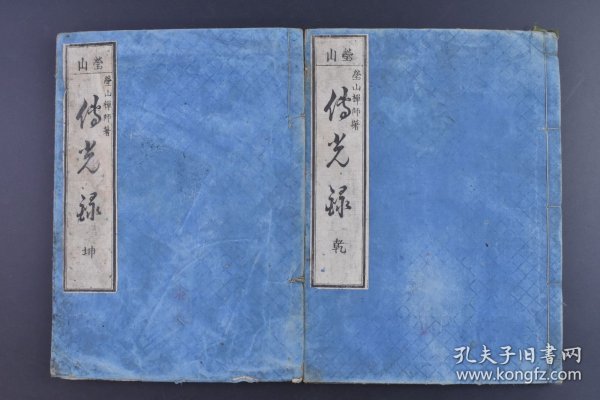 瑩山
瑩山禪師著
傳光録
乾
瑩山
瑩山禪師著
傳光録
坤
孔夫子旧书网
www.kongfz.com